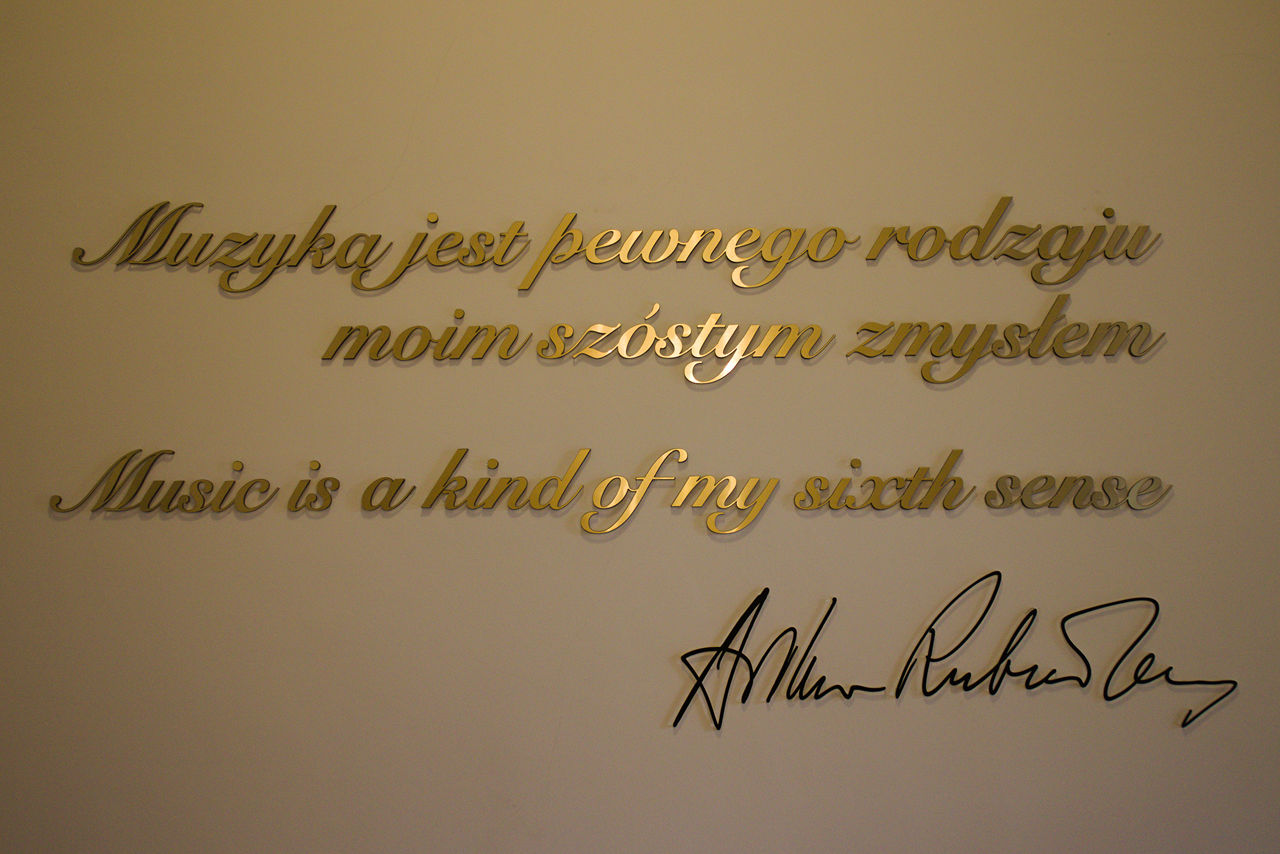 Muzyka jest pewnego rodzaju
moim szóstym zmysłem
Music is a kind of my sixth sense
Arthur Rubinstein